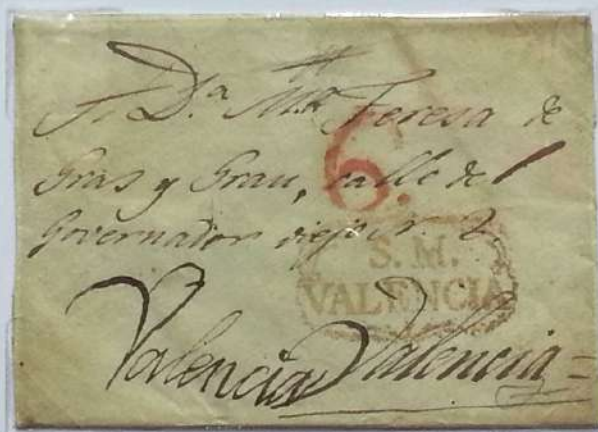 A D.ª M.ª Teresa de
Gras y Grau, calle del
Governador viejo n. 2,
6.
S. M.
VALENCIA
Valencia Valencia=